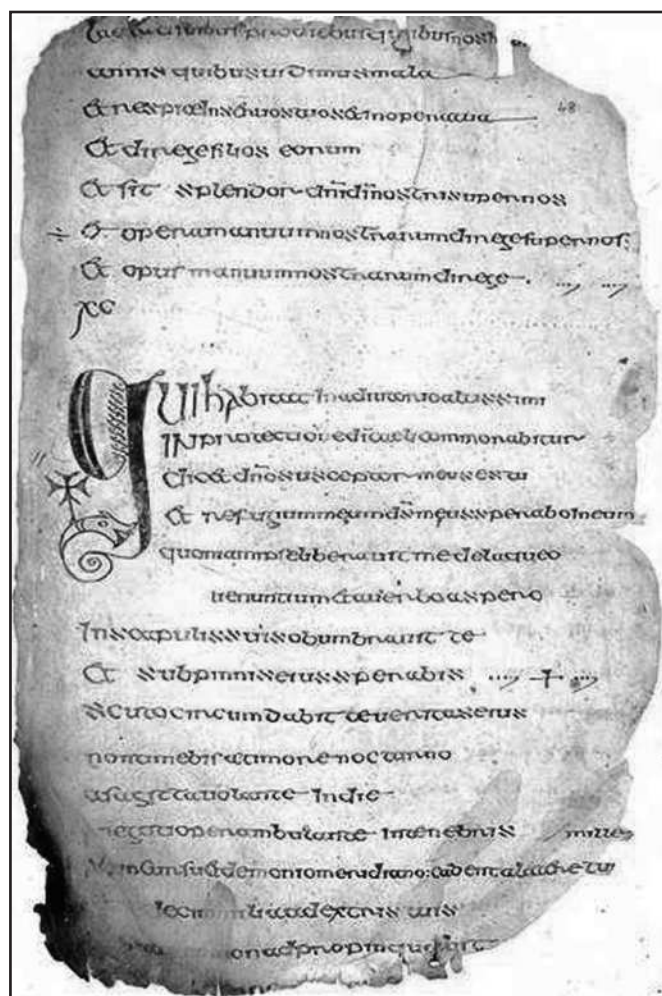 sumus pro diebus quibus nos
annis quibus uidimus mala
Et respice in seruos tuos et in opera tua
48
Et dirige filios eorum
Et sit splendor dni di nostri super nos
÷ Et opera manuum nostrarum dirige super nos:
Et opus manuum nostrarum dirige
xc
Qui habitat in adiutorio altissimi
IN protectione di caeli commorabitur
dno susceptor meus es tu
Et refugium meum ds meus sperabo in eum
quoniam ipse liberauit me de laqueo
uenantium et a uerbo aspero
In scapulis suis obumbrauit te
Et sub pinnis eius sperabis
Scuto circumdabit te ueritas eius
non timebis a timore nocturno
a sagitta uolante in die
perambulante in tenebris / mille
et demonio meridiano: cadent a latere tuo
decem milia a dextris tuis
non adpropinquabit